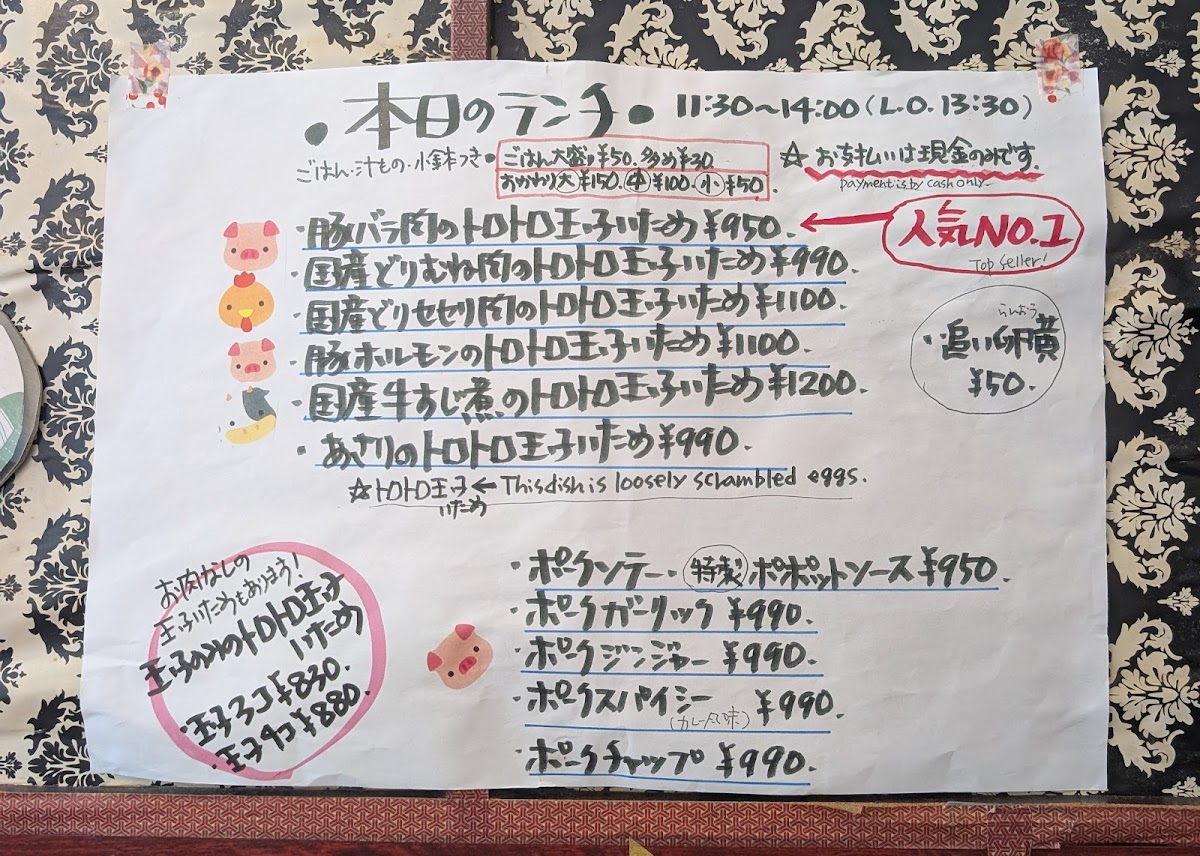 ・本日のランチ・ 11:30〜14:00(L.O.13:30)
ごはん・汁もの・小鉢つき・
ごはん大盛り¥50.多め¥30
おかわり大¥150.中¥100.小¥50
☆お支払いは現金のみです.
payment is by cash only.
・豚バラ肉のトロトロ玉子いため¥950.
人気NO.1
Top Seller!
・国産どりむね肉のトロトロ玉子いため¥990.
・国産どりセセリ肉のトロトロ玉子いため¥1100.
・豚ホルモンのトロトロ玉子いため¥1100.
・国産牛すじ煮のトロトロ玉子いため¥1200.
・あさりのトロトロ玉子いため¥990.
☆トロトロ玉子いため←This dish is loosely scrambled eggs.
らんおう
・追い卵黄
¥50.
お肉なしの
玉子いためもあります!
玉子のみのトロトロ玉子
いため
・玉子3コ¥830.
・玉子4コ¥880.
・ポークソテー・特製ポポットソース¥950.
・ポークガーリック ¥990.
・ポークジンジャー ¥990.
・ポークスパイシー ¥990.
(カレー風味)
・ポークチャップ¥990.